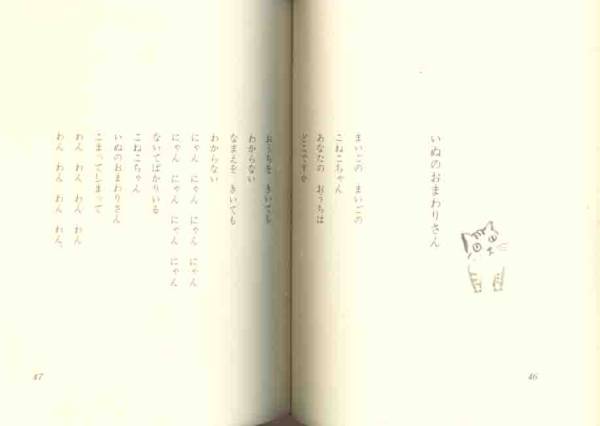 いぬのおまわりさん
まいごの まいごの
こねこちゃん
あなたの おうちは
どこですか
おうちを きいても
わからない
なまえを きいても
わからない
にゃん にゃん にゃん にゃん
にゃん にゃん にゃん にゃん
ないてばかりいる
こねこちゃん
いぬのおまわりさん
こまってしまって
わん わん わん わん
わん わん わん わん。
46
47